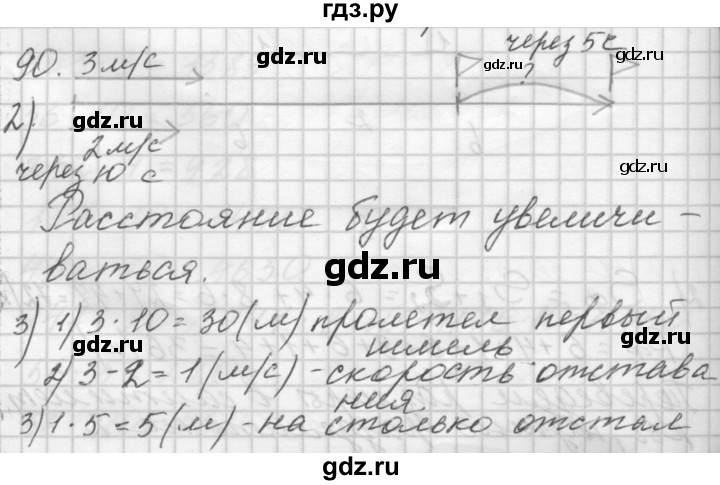 гдз.ру
90. 3 м/с
через 5 с
?
2)
2 м/с
через 10 с
Расстояние будет увеличи-
ваться.
3) 1) 3·10=30(м) пролетел первый
шмель
2) 3-2=1(м/с) - скорость отстава
ния
3) 1·5=5(м) - на столько отстал
gdz.ru
gdz.ru
gdz.ru
gdz.ru
gdz.ru
gdz.ru
gdz.ru
gdz.ru
gdz.ru
gdz.ru
gdz.ru
gdz.ru